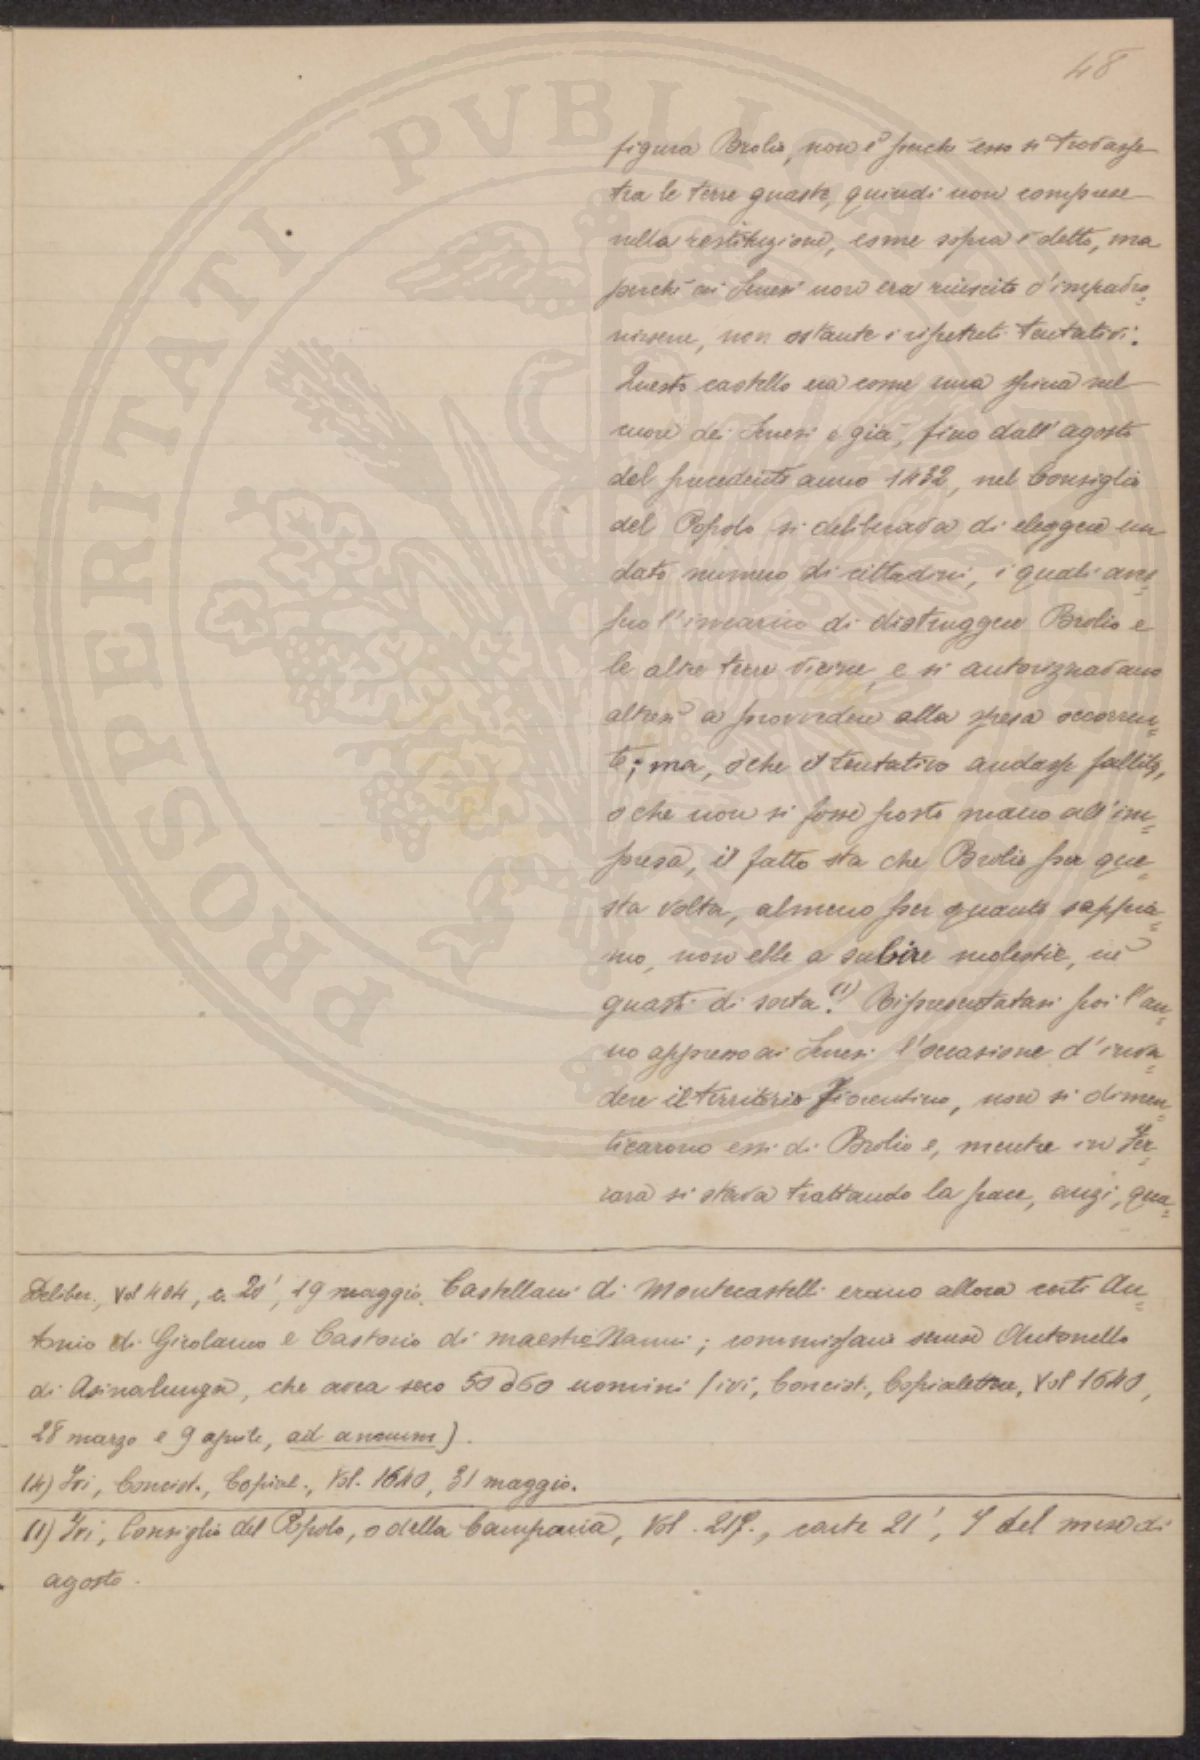 48
figura Brolio, non è perché esso si trovasse
tra le terre guaste, quindi non comprese
nella restituzione, come sopra è detto, ma
perché ai Senesi non era riuscito d'impadro=
nirsene, non ostante i ripetuti tentativi.
Questo castello era come una spina nel
cuore dei Senesi e già, fino dall'agosto
del precedente anno 1432, nel Consiglio
del Popolo si deliberava di eleggere un
dato numero di cittadini, i quali aves=
sero l'incarico di distruggere Brolio e
le altre terre vicine, e si autorizzavano
altresì a provvedere alla spesa occorren=
te; ma, o che il tentativo andasse fallito,
o che non si fosse posto mano all'im=
presa, il fatto sta che Brolio per que=
sta volta, almeno per quanto sappia=
mo, non ebbe a subire molestie, nè
guasti di sorta.(1) Ripresentatasi poi l'an=
no appresso ai Senesi l'occasione d'inva=
dere il territorio Fiorentino, non si dimen=
ticarono essi di Brolio e, mentre in Fer=
rara si stava trattando la pace, anzi, qua=
Deliber., Vol 404, c. 20', 19 maggio. Castellani di Montecastelli erano allora certi An=
tonio di Girolamo e Castorio di maestro Nanni; commissario senese Antonello
di Asinalunga, che avea seco 50 o 60 uomini (ivi, Concist., Copialettere, Vol 1640,
28 marzo e 9 aprile, ad annum).
(4) Ivi, Concist., Copial., Vol. 1640, 31 maggio.
(1) Ivi, Consiglio del Popolo, o della Campana, Vol. 217., carte 21', del mese di
agosto.
PROSPERITATI PVBLICAE